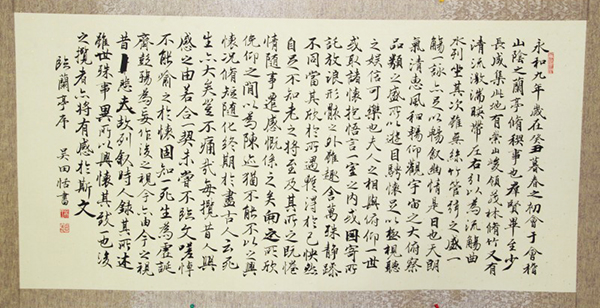 永和九年歲在癸丑暮春之初會于會稽
山陰之蘭亭脩稧事也群賢畢至少
長咸集此地有崇山峻領茂林脩竹又有
清流激湍暎帶左右引以為流觴曲
水列坐其次雖無絲竹管弦之盛一
觴一詠亦足以暢叙幽情是日也天朗
氣清惠風和暢仰觀宇宙之大俯察
品類之盛所以遊目騁懷足以極視聽
之娛信可樂也夫人之相與俯仰一世
或取諸懷抱悟言一室之內或因寄所
託放浪形骸之外雖趣舍萬殊靜躁
不同當其欣於所遇暫得於己快然
自足不知老之將至及其所之既惓
情隨事遷感慨係之矣向之所欣
俛仰之閒以為陳迹猶不能不以之興
懷況脩短隨化終期於盡古人云死
生亦大矣豈不痛哉每攬昔人興
感之由若合一契未嘗不臨文嗟悼
不能喻之於懷固知一死生為虛誕
齊彭殤為妄作後之視今亦由今之視
昔悲夫故列叙時人錄其所述
雖世殊事異所以興懷其致一也後
之攬者亦將有感於斯文
臨蘭亭序 吴田恬書